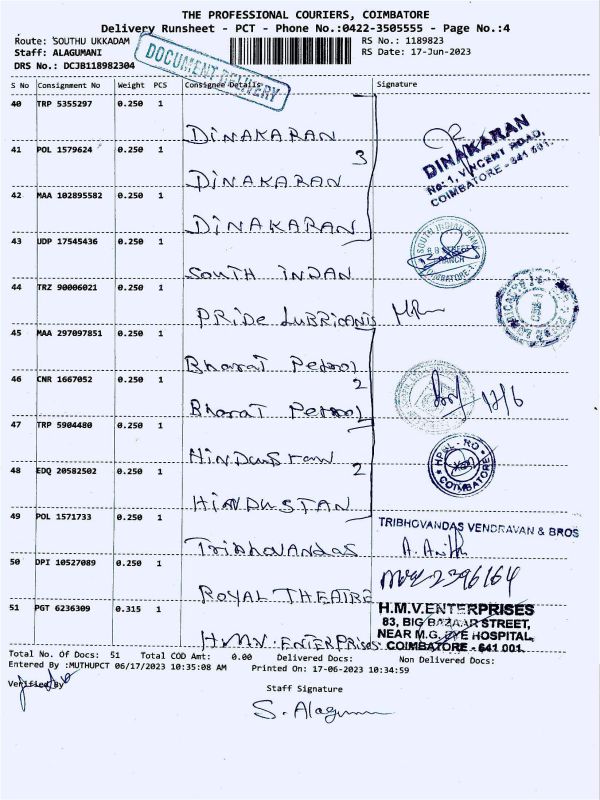 THE PROFESSIONAL COURIERS, COIMBATORE
Delivery Runsheet - PCT - Phone No.:0422-3505555 - Page No.:4
Route: SOUTHU UKKADAM
RS No.: 1189823
Staff: ALAGUMANI
RS Date: 17-Jun-2023
DRS No.: DCJB118982304
DOCUMENT DELIVERY
S No Consignment No Weight PCS Consignee Details Signature
40 TRP 5355297 0.250 1 DINAKARAN
41 POL 1579624 0.250 1 DINAKARAN
3
42 MAA 102895582 0.250 1 DINAKARAN
DINAKARAN
No: 1, VINCENT ROAD,
COIMBATORE - 641 001.
43 UDP 17545436 0.250 1 SOUTH INDAN
SOUTH INDIAN BANK
44 TRZ 90006021 0.250 1 PRIDE LUBRICANTS
45 MAA 297097851 0.250 1 Bharat Petrol
2
46 CNR 1667052 0.250 1 Bharat Petrol
17/6
47 TRP 5904480 0.250 1 HINDUSTAN
2
48 EDQ 20582502 0.250 1 HINDUSTAN
HPCL - RO
COIMBATORE
49 POL 1571733 0.250 1 TRIBHOVANDAS
TRIBHOVANDAS VENDRAVAN & BROS
50 DPI 10527089 0.250 1 ROYAL THEATRE
2396164
51 PGT 6236309 0.315 1 HMV. ENTERPRISES
H.M.V.ENTERPRISES
83, BIG BAZAAR STREET,
NEAR M.G. EYE HOSPITAL,
COIMBATORE - 641 001.
Total No. Of Docs: 51 Total COD Amt: 0.00 Delivered Docs: Non Delivered Docs:
Entered By :MUTHUPCT 06/17/2023 10:35:08 AM Printed On: 17-06-2023 10:34:59
Verified By
Staff Signature
S. Alagu